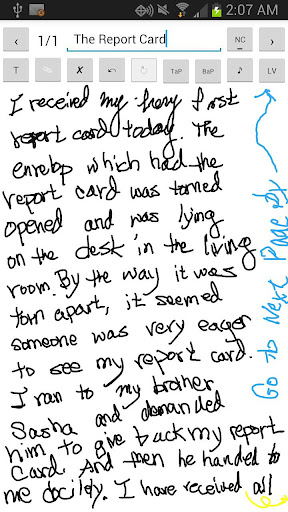 2:07 AM
1/1 The Report Card NC
T TaP BaP LV
I received my very first
report card today. The
envelop which had the
report card was torned
opened and was lying
on the desk in the living
room. By the way it was
torn apart, it seemed
someone was very eager
to see my report card.
I ran to my brother
Sasha and demanded
him to give back my report
card. And then he handed to
me docilely. I have received all
Go to Next Page